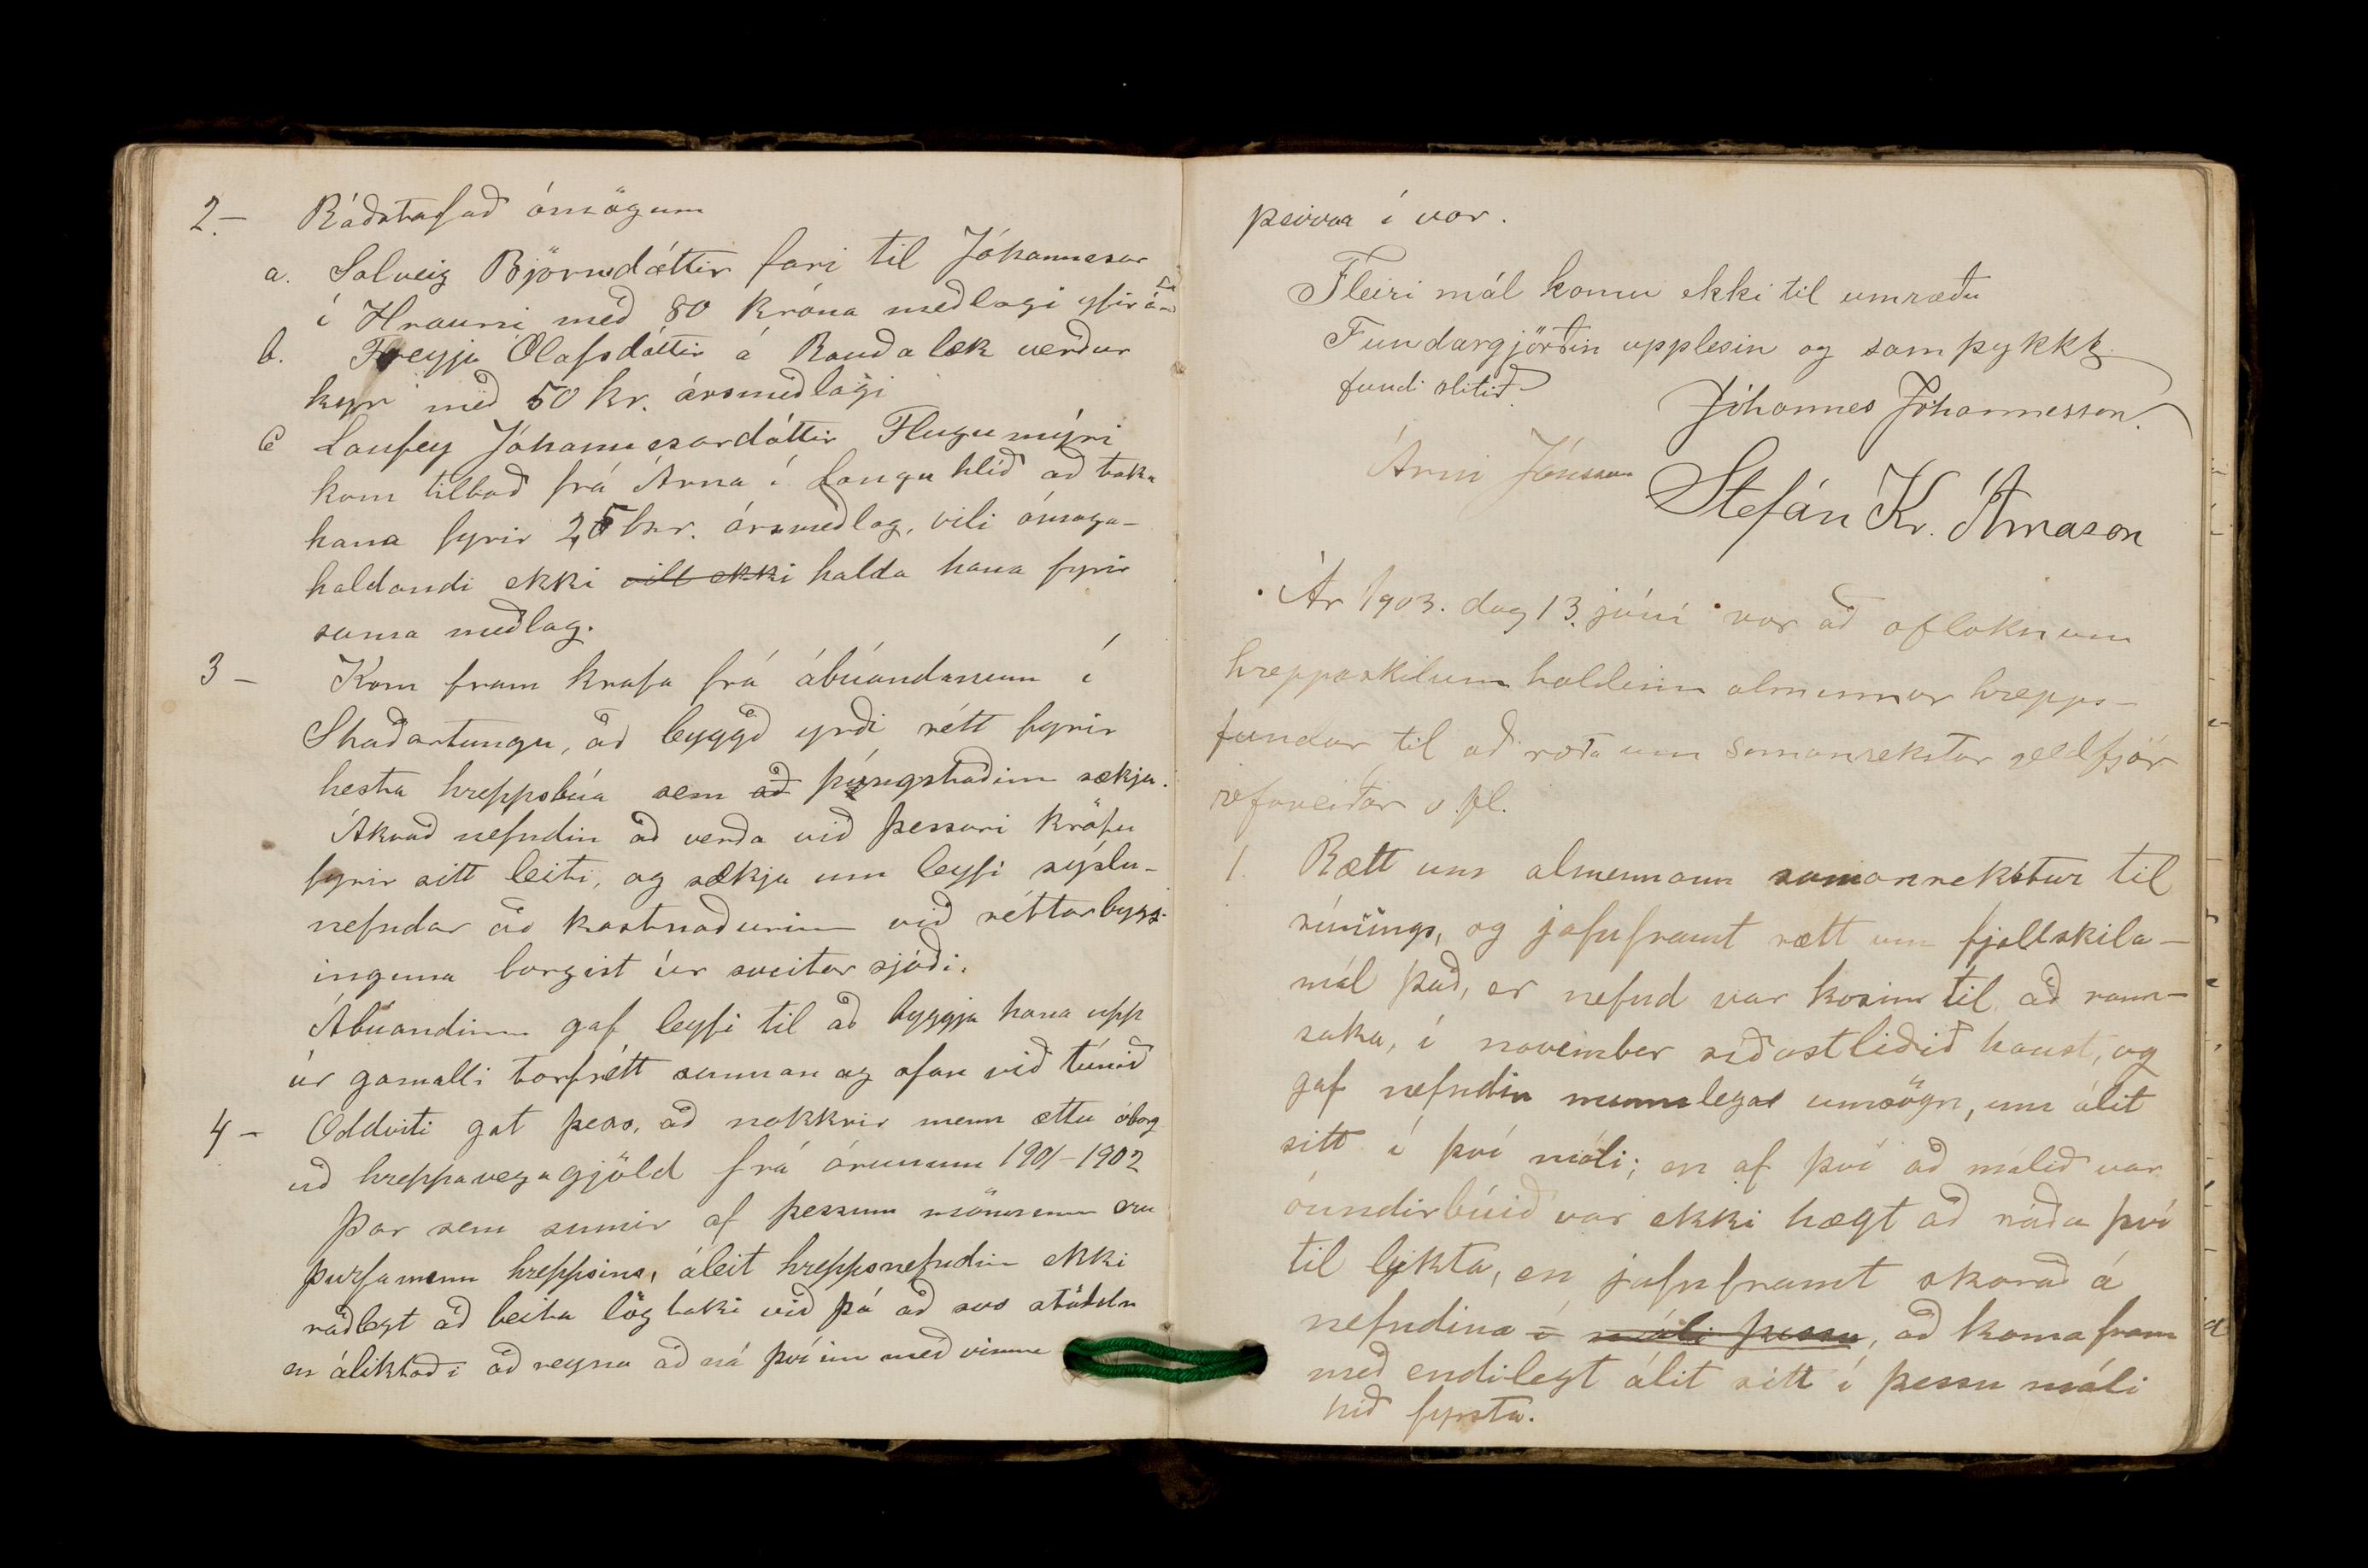 2.- Ráðstafað ómögum
a. Solveig Björnsdóttir fari til Jóhannesar
í Hrauni með 80 króna meðlagi yfir árið
b. Freyja Ólafsdóttir á Rauðalæk verður
kyr með 50 kr. ársmeðlagi
c Laufey Jóhannesardóttir Flugumýri
kom tilboð frá Árna í Lönguhlíð að taka
hana fyrir 25 kr. ársmeðlag, vili ómaga-
haldandi ekki vill ekki halda hana fyrir
sama meðlag.
3- Kom fram krafa frá ábúandanum í
Skaðartungu, að byggð yrði rétt fyrir
hesta hreppsbúa sem að þingstaðinn sækja.
Ákvað nefndin að verða við þessari kröfu
fyrir sitt leiti, og sækja um leyfi sýslu-
nefndar að kostnaðurinn við réttarbygg-
inguna borgist úr sveitarsjóði.
Ábúandinn gaf leyfi til að byggja hana upp
úr gamalli torfrétt sunnan og ofan við túnið
4- Oddviti gat þess, að nokkrir menn ættu óborg
uð hreppavegagjöld frá árunum 1901-1902
Þar sem sumir af þessum mönnum eru
þurfamenn hreppsins, áleit hreppsnefndin ekki
ráðlegt að beita lögtaki við þá að svo stöddu
en áliktaði að reyna að ná því inn með vinnu
þeirra í vor.
Fleiri mál komu ekki til umræðu
Fundargjörðin upplesin og samþykkt
fundi slitið.
Jóhannes Jóhannesson.
Árni Jónsson
Stefán Kr. Árnason
Ár 1903. dag 13. júní var að afloknum
hreppaskilum haldinn almennur hrepps-
fundur til að ræða um samanrekstar geldfjár
refaveiðar o.fl.
1. Rætt um almennann samanrekstur til
rúnings, og jafnframt rætt um fjallskila-
mál það, er nefnd var kosin til að rann-
saka, í november síðastliðið haust, og
gaf nefndin munnlega umsögn, um álit
sitt í því máli; en af því að málið var
óundirbúið var ekki hægt að ráða því
til lykta, en jafnframt skorað á
nefndina í máli þessu, að koma fram
með endilegt álit sitt í þessu máli
hið fyrsta.